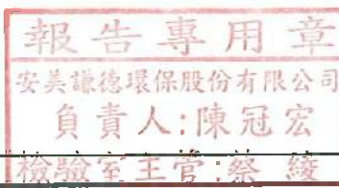 報告專用章
安美謙德環保股份有限公司
負責人:陳冠宏
檢驗室主管:蔡 綾